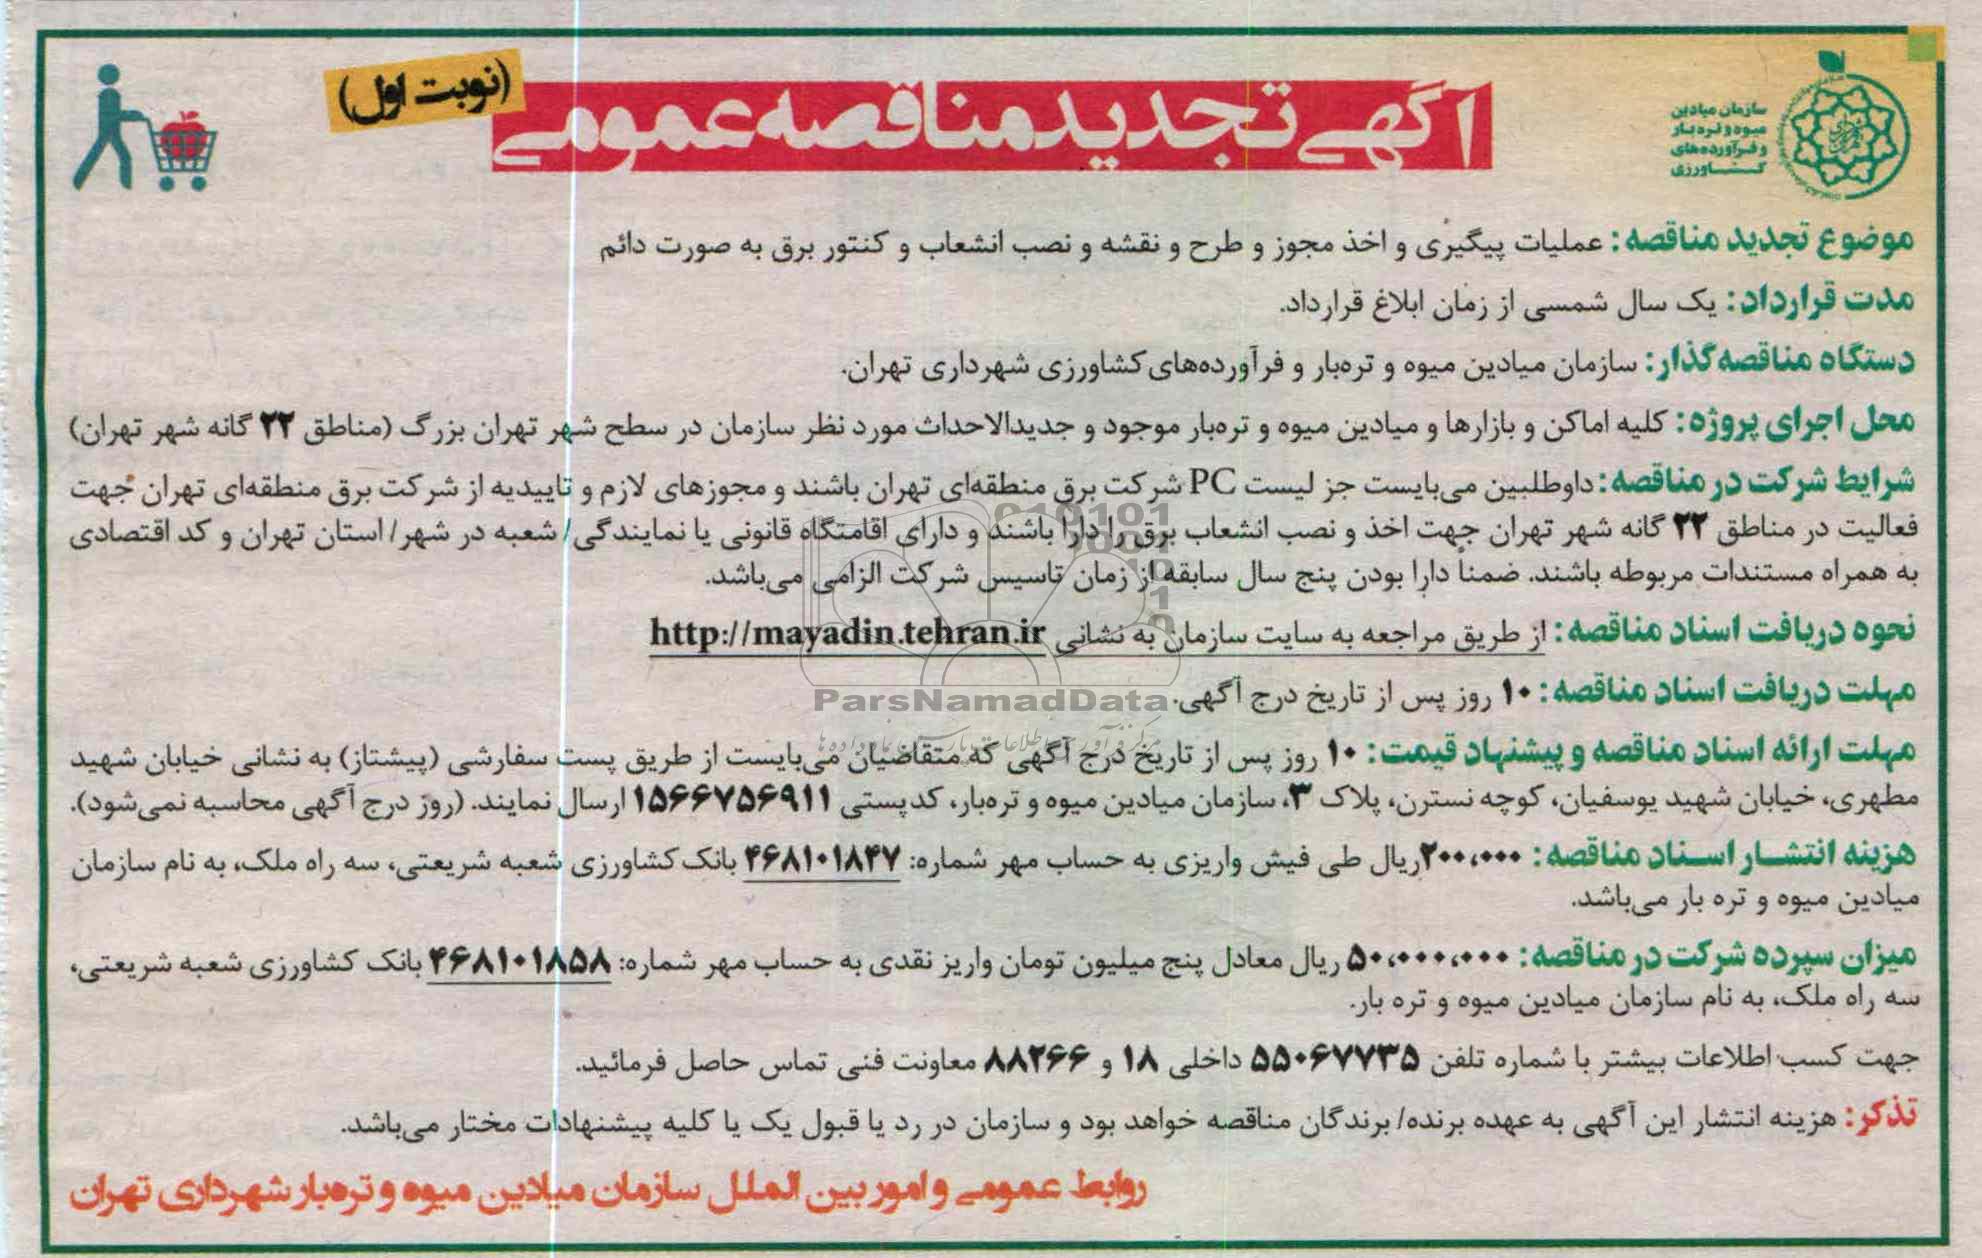 سازمان میادین
میوه و تره‌بار
و فرآورده‌های
کشاورزی
آگهی تجدید مناقصه عمومی
(نوبت اول)
موضوع تجدید مناقصه: عملیات پیگیری و اخذ مجوز و طرح و نقشه و نصب انشعاب و کنتور برق به صورت دائم
مدت قرارداد: یک سال شمسی از زمان ابلاغ قرارداد.
دستگاه مناقصه‌گذار: سازمان میادین میوه و تره‌بار و فرآورده‌های کشاورزی شهرداری تهران.
محل اجرای پروژه: کلیه اماکن و بازارها و میادین میوه و تره‌بار موجود و جدیدالاحداث مورد نظر سازمان در سطح شهر تهران بزرگ (مناطق ۲۲ گانه شهر تهران)
شرایط شرکت در مناقصه: داوطلبین می‌بایست جز لیست PC شرکت برق منطقه‌ای تهران باشند و مجوزهای لازم و تاییدیه از شرکت برق منطقه‌ای تهران جهت
فعالیت در مناطق ۲۲ گانه شهر تهران جهت اخذ و نصب انشعاب برق را دارا باشند و دارای اقامتگاه قانونی یا نمایندگی/ شعبه در شهر/ استان تهران و کد اقتصادی
به همراه مستندات مربوطه باشند. ضمناً دارا بودن پنج سال سابقه از زمان تاسیس شرکت الزامی می‌باشد.
نحوه دریافت اسناد مناقصه: از طریق مراجعه به سایت سازمان به نشانی http://mayadin.tehran.ir
مهلت دریافت اسناد مناقصه: ۱۰ روز پس از تاریخ درج آگهی.
ParsNamadData
مهلت ارائه اسناد مناقصه و پیشنهاد قیمت: ۱۰ روز پس از تاریخ درج آگهی که متقاضیان می‌بایست از طریق پست سفارشی (پیشتاز) به نشانی خیابان شهید
مطهری، خیابان شهید یوسفیان، کوچه نسترن، پلاک ۳، سازمان میادین میوه و تره‌بار، کدپستی ۱۵۶۶۷۵۶۹۱۱ ارسال نمایند. (روز درج آگهی محاسبه نمی‌شود).
هزینه انتشار اسناد مناقصه: ۲۰۰،۰۰۰ریال طی فیش واریزی به حساب مهر شماره: ۴۶۸۱۰۱۸۴۷ بانک کشاورزی شعبه شریعتی، سه راه ملک، به نام سازمان
میادین میوه و تره بار می‌باشد.
میزان سپرده شرکت در مناقصه: ۵۰،۰۰۰،۰۰۰ ریال معادل پنج میلیون تومان واریز نقدی به حساب مهر شماره: ۴۶۸۱۰۱۸۵۸ بانک کشاورزی شعبه شریعتی،
سه راه ملک، به نام سازمان میادین میوه و تره بار.
جهت کسب اطلاعات بیشتر با شماره تلفن ۵۵۰۶۷۷۳۵ داخلی ۱۸ و ۸۸۲۶۶ معاونت فنی تماس حاصل فرمائید.
تذکر: هزینه انتشار این آگهی به عهده برنده/ برندگان مناقصه خواهد بود و سازمان در رد یا قبول یک یا کلیه پیشنهادات مختار می‌باشد.
روابط عمومی و امور بین الملل سازمان میادین میوه و تره‌بار شهرداری تهران